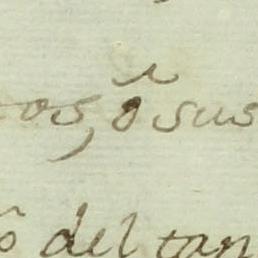 os, ô sus
ô del tan